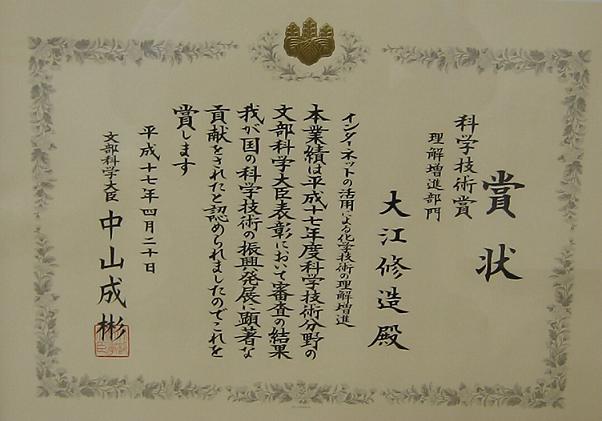 賞状
科学技術賞
理解増進部門
大江修造殿
インターネットの活用による化学技術の理解増進
本業績は平成十七年度科学技術分野の
文部科学大臣表彰において審査の結果
我が国の科学技術の振興発展に顕著な
貢献をされたと認められましたのでこれを
賞します
平成十七年四月二十日
文部科学大臣 中山成彬